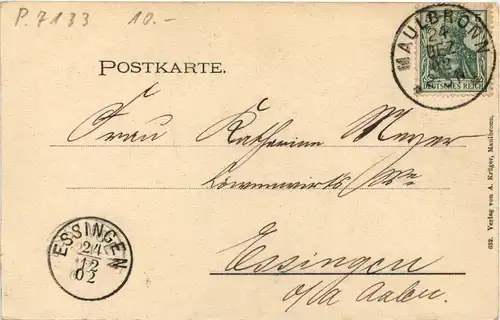 P. 7133 10.-
MAULBRONN
24
DEZ
02
DEUTSCHES REICH
POSTKARTE.
Frau Katharine Mayer
Löwenwirts Wwe
Essingen
o/a Aalen.
ESSINGEN
24
12
02
632. Verlag von A. Krüger, Maulbronn.